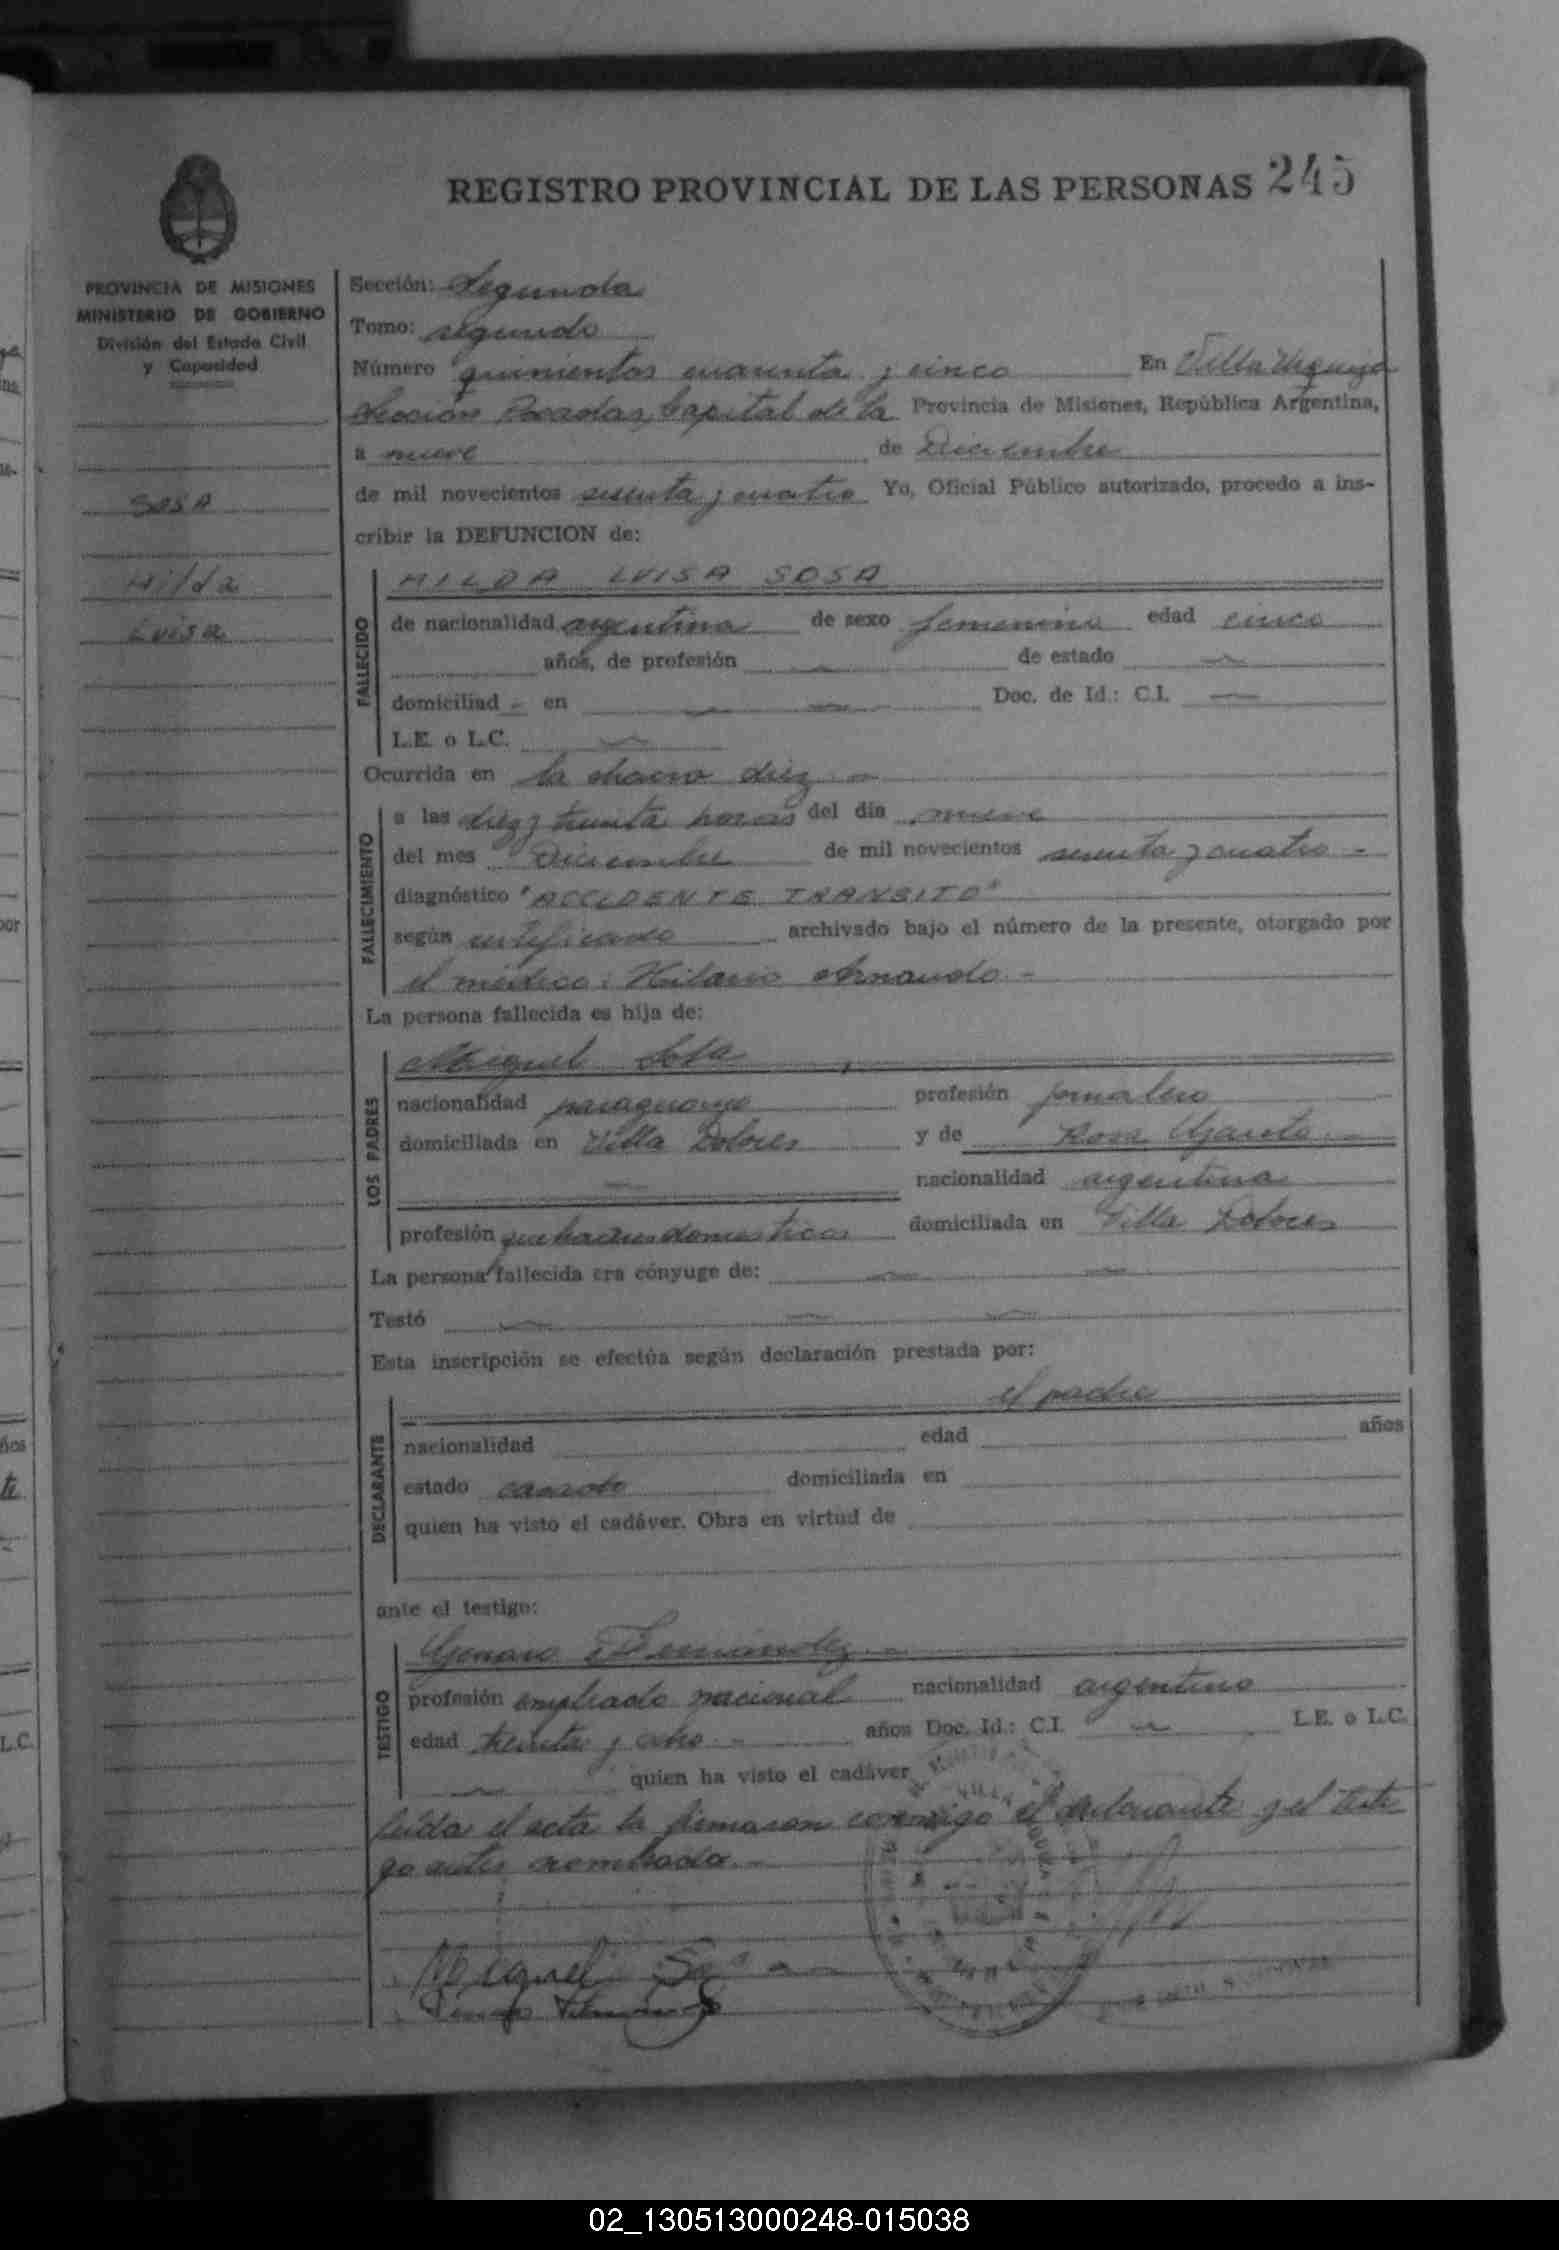 REGISTRO PROVINCIAL DE LAS PERSONAS 245
PROVINCIA DE MISIONES
MINISTERIO DE GOBIERNO
División del Estado Civil
y Capacidad
SOSA
Hilda
Luisa
Sección: Segunda
Tomo: segundo
Número quinientos cuarenta y cinco En Villa Urquiza
Sección Posadas, Capital de la Provincia de Misiones, República Argentina,
a nueve de Diciembre
de mil novecientos sesenta y cuatro Yo, Oficial Público autorizado, procedo a ins-
cribir la DEFUNCION de:
FALLECIDO
HILDA LUISA SOSA
de nacionalidad argentina de sexo femenino edad cinco
años, de profesión de estado
domiciliad - en Doc. de Id.: C.I.
L.E. o L.C.
Ocurrida en la chacra diez -
FALLECIMIENTO
a las diez y treinta horas del día nueve
del mes Diciembre de mil novecientos sesenta y cuatro -
diagnóstico "ACCIDENTE TRANSITO"
según certificado archivado bajo el número de la presente, otorgado por
el médico: Hilario Arnaudo -
La persona fallecida es hija de:
LOS PADRES
Miguel Sosa
nacionalidad paraguayo profesión jornalero
domiciliada en Villa Dolores y de Rosa
nacionalidad argentina
profesión quehaceres domesticos domiciliada en Villa Dolores
La persona fallecida era cónyuge de:
Testó
Esta inscripción se efectúa según declaración prestada por:
DECLARANTE
el padre
nacionalidad edad años
estado casado domiciliada en
quien ha visto el cadáver. Obra en virtud de
ante el testigo:
TESTIGO
Genaro Fernández -
profesión empleado nacional nacionalidad argentino
edad treinta y ocho - años Doc. Id.: C.I. L.E. o L.C.
quien ha visto el cadáver
Leída el acta la firmaron conmigo el declarante y el testi
go antes nombrado. -
Miguel Sosa
02_130513000248-015038